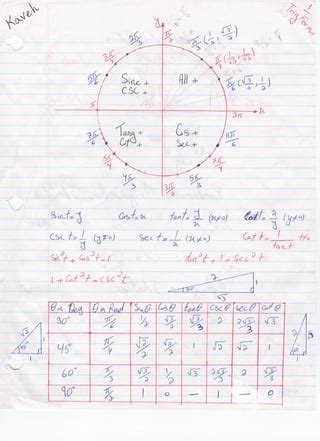 Kaveh
1
Trig Forms
y
π/2
2π/3
π/3 (1/2, √3/2)
3π/4
5π/6
π/6 (√3/2, 1/2)
Sine +
CSC +
All +
π
x
2π
Tang +
Cot +
Cos +
Sec +
7π/6
11π/6
5π/4
7π/4
4π/3
5π/3
3π/2
Sint = y
Cost = x
tant = y/x (x≠0)
Cott = x/y (y≠0)
CSC t = 1/y (y≠0)
Sect = 1/x (x≠0)
Cot t = 1/tant
Sin²t + Cos²t = 1
tan²t + 1 = Sec²t
1 + Cot²t = CSC²t
2
1
√3
θ in Deg θ in Rad Sinθ Cosθ tanθ CSCθ Secθ Cotθ
30° π/6 1/2 √3/2 √3/3 2 2√3/3 √3
45° π/4 √2/2 √2/2 1 √2 √2 1
60° π/3 √3/2 1/2 √3 2√3/3 2 √3/3
90° π/2 1 0 — 1 — 0
√2
1
1
2
√3
1